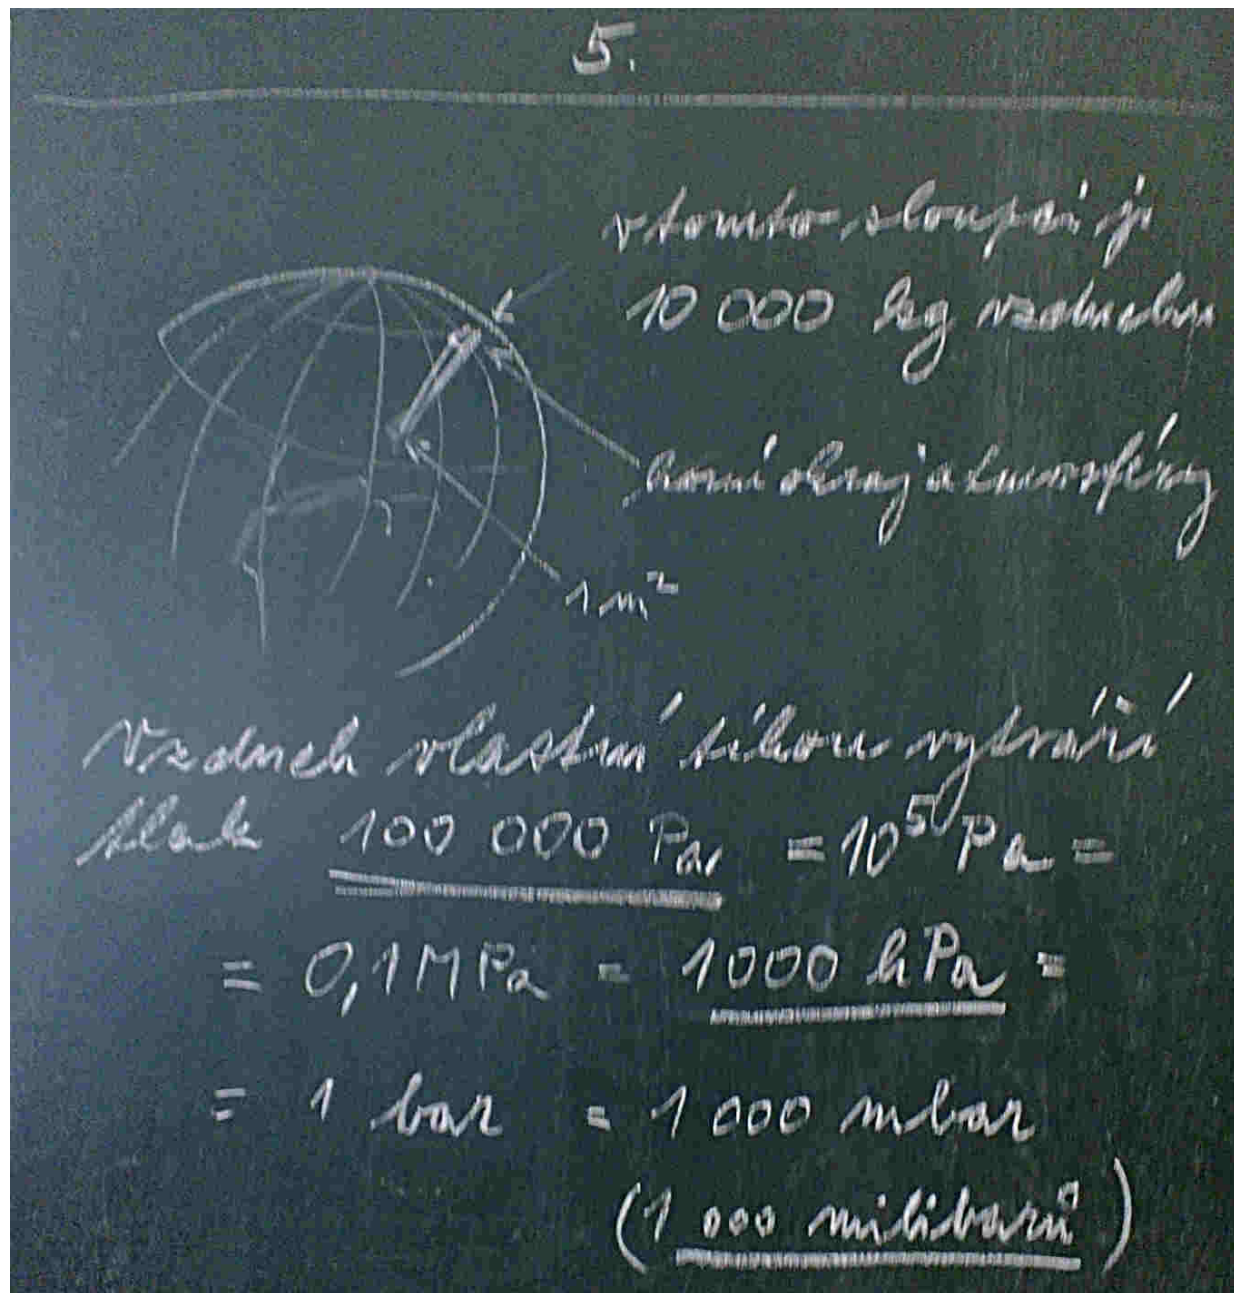 5.
v tomto sloupci je
10 000 kg vzduchu
horní okraj atmosféry
1 m²
Vzduch vlastní tíhou vytváří
tlak 100 000 Pa = 10⁵ Pa =
= 0,1 MPa = 1000 hPa =
= 1 bar = 1 000 mbar
(1 000 milibarů)